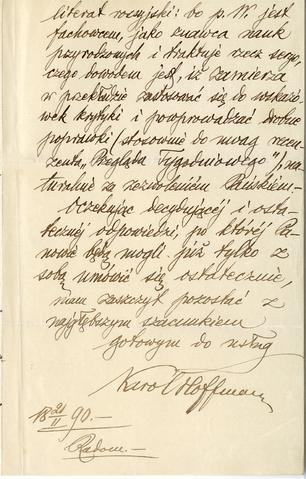 literat rosyjski: bo p. W. jest
fachowcem, jako znawca nauk
przyrodzonych i traktuje rzecz seryo,
czego dowodem jest, iż zamierza
w przekładzie zastosować się do wskazó-
wek krytyki i powprowadzać drobne
poprawki (stosownie do uwag recen-
zenta „Przeglądu Tygodniowego"), na-
turalnie za zezwoleniem Pańskiem.—
Oczekując decydującej i osta-
tecznej odpowiedzi, po której Pa-
nowie będą mogli już tylko z
sobą umówić się ostatecznie,
mam zaszczyt pozostać z
najgłębszym szacunkiem
gotowym do usług
Karol Hoffman
18 21/II 90.—
Radom.—